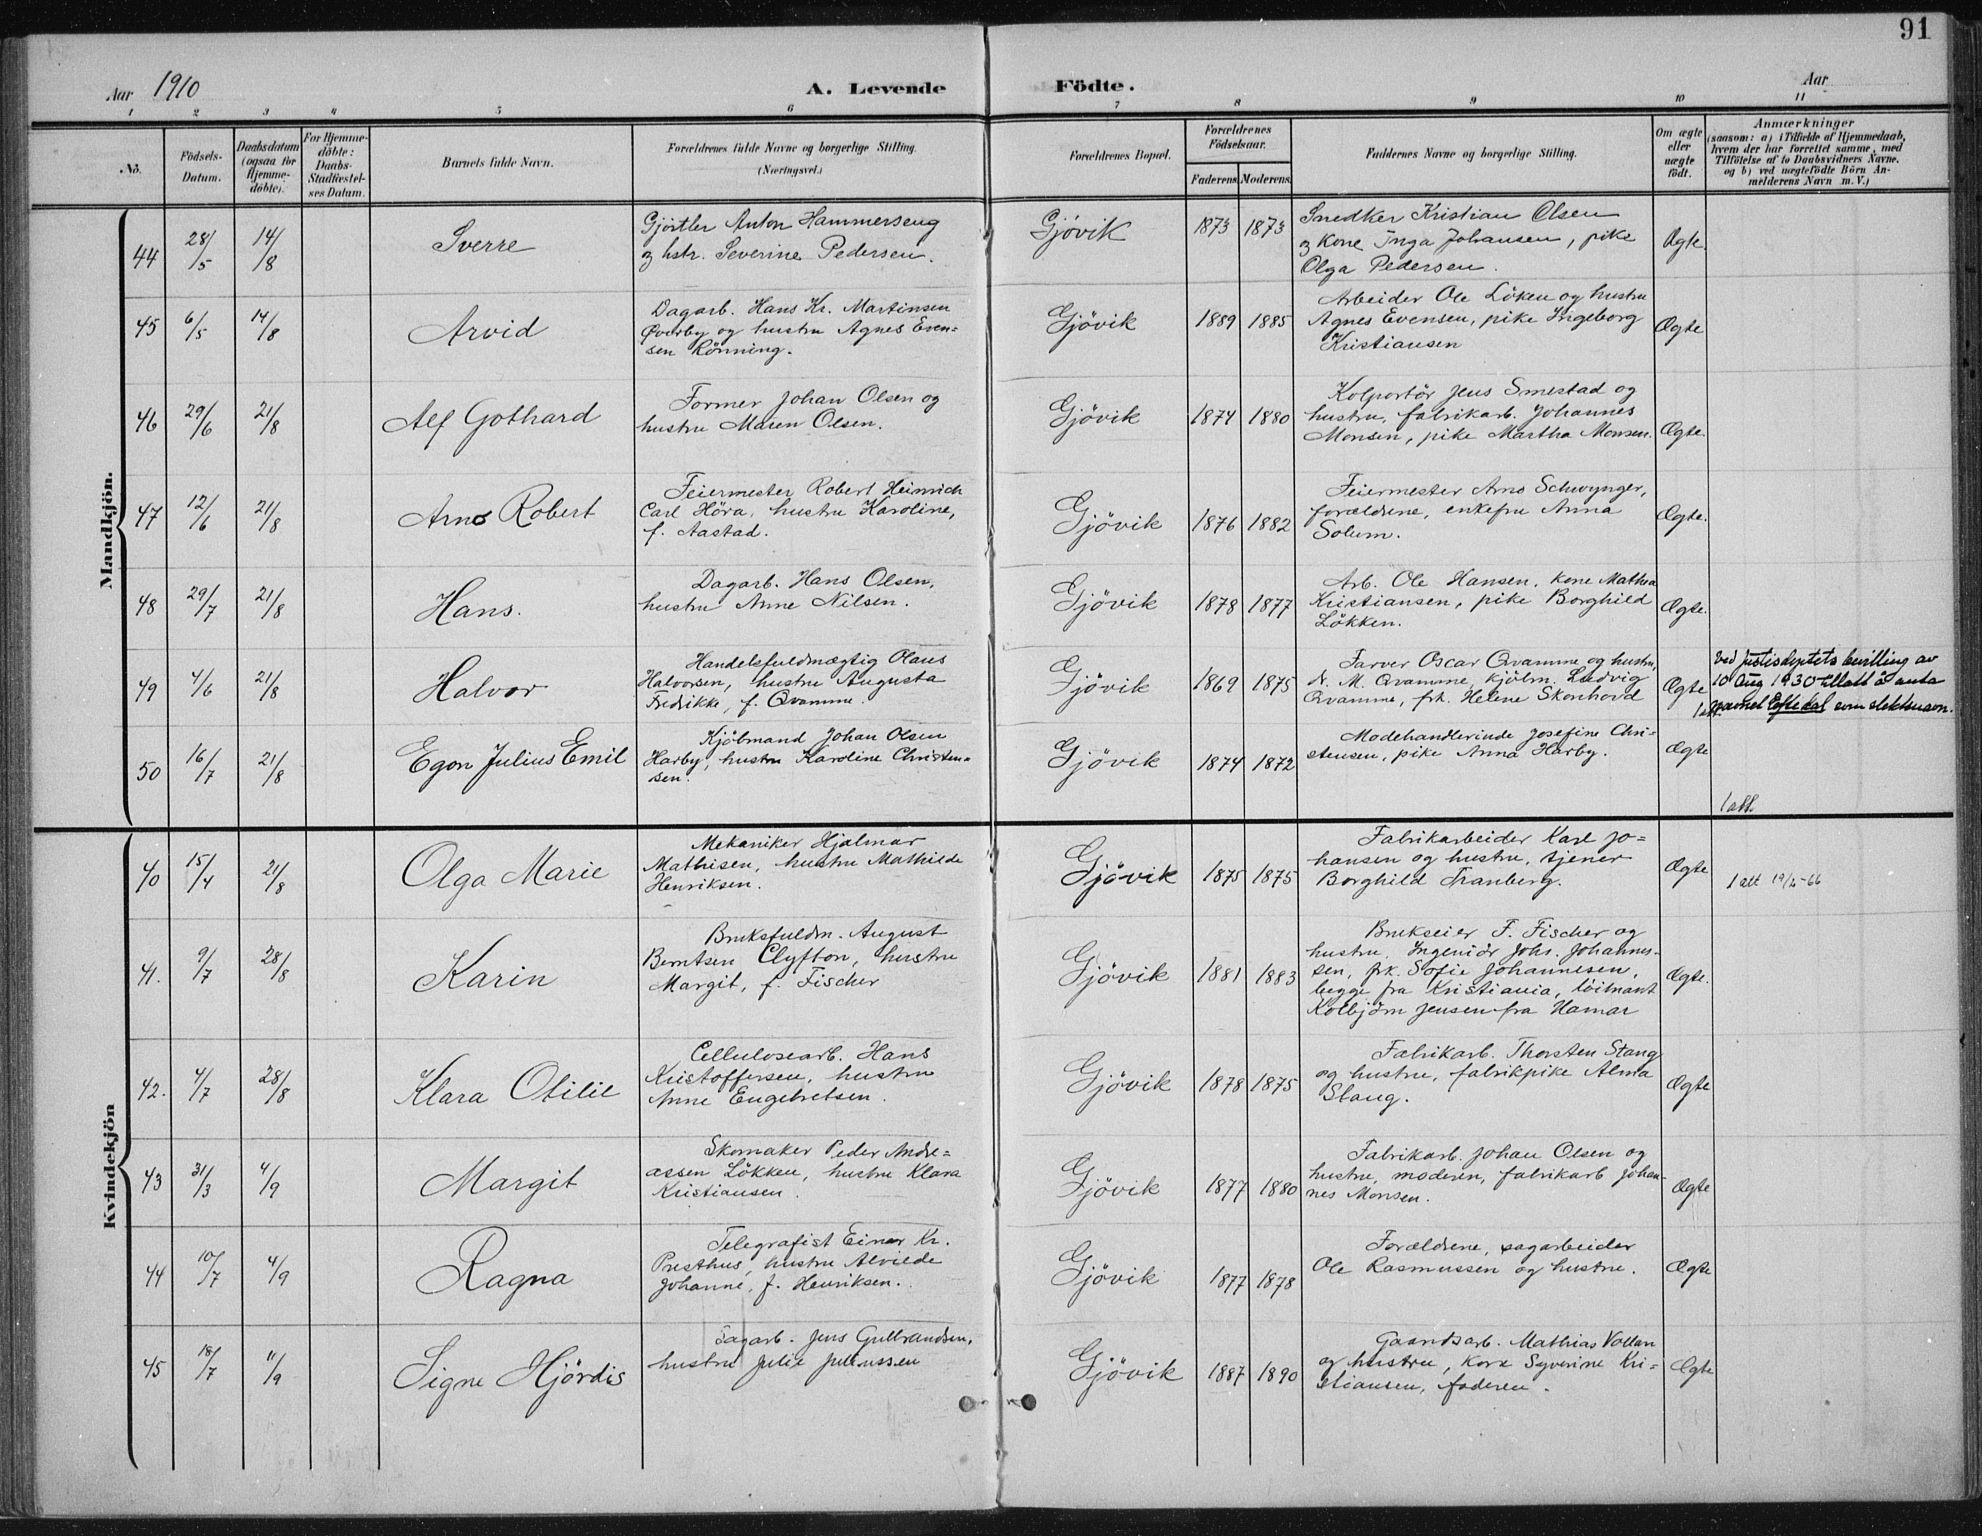 91
Aar 1910
A. Levende Födte.
Aar
1 2 3 4 5 6 7 8 9 10 11
No.
Födsels-Datum.
Daabsdatum (ogsaa for Hjemme-döbte).
For Hjemme-döbte: Daabs-Stadfæstel-ses Datum.
Barnets fulde Navn.
Forældrenes fulde Navne og borgerlige Stilling. (Næringsvei.)
Forældrenes Bopæl.
Forældrenes Födselsaar.
Faderens. Moderens.
Faddernes Navne og borgerlige Stilling.
Om ægte eller uægte födt.
Anmærkninger
(saasom: a) i Tilfælde af Hjemmedaab,
hvem der har forrettet samme, med
Tilföielse af to Daabsvidners Navne.
og b) ved uægtefödte Börn An-
melderens Navn m. V.)
Mandkjön.
44 28/5 14/8 Sverre
Gjörtler Anton Hammerseng
og hstr. Severine Pedersen.
Gjövik 1873 1873
Snedker Kristian Olsen
og Kone Inga Johansen, pike
Olga Pedersen.
Ægte.
45 6/5 14/8 Arvid
Dagarb. Hans Kr. Martinsen
Överby og hustru Agnes Even-
sen Rönning.
Gjövik 1889 1885
Arbeider Ole Löken og hustru
Agnes Evensen, pike Ingeborg
Kristiansen
Ægte
46 29/6 21/8 Alf Gothard
Former Johan Olsen og
hustru Maren Olsen.
Gjövik 1874 1880
Kolportör Jens Smestad og
hustru, fabrikarb. Johannes
Monsen, pike Martha Monsen.
Ægte.
47 12/6 21/8 Arno Robert
Feiermester Robert Heinrich
Carl Höra, hustru Karoline,
f. Aastad.
Gjövik 1876 1882
Feiermester Arno Schwynger,
forældrene, enkefru Anna
Solum.
Ægte.
48 29/7 21/8 Hans.
Dagarb. Hans Olsen,
hustru Anne Nilsen.
Gjövik 1878 1877
Arb. Ole Hansen, kone Mathea
Kristiansen, pike Borghild
Lökken.
Ægte.
49 4/6 21/8 Halvor
Handelsfuldmægtig Olaus
Halvorsen, hustru Augusta
Fredrikke, f. Qvamme.
Gjövik 1869 1875
Farver Oscar Qvamme og hustru,
N. M. Qvamme, kjölm. Ludvig
Qvamme, frk. Helene Skonhovd
Ægte
Ved Justisdeptets bevilling av
10 Aug 1930 tillatt å anta
navnet Eftedal som slektsnavn.
1 att.
50 16/7 21/8 Egon Julius Emil
Kjölmand Johan Olsen
Harby, hustru Karoline Christen-
sen.
Gjövik 1874 1872
Modehandlerinde Josefine Chri-
stensen, pike Anna Harby.
Ægte
1 att.
Kvindekjön
40 15/4 21/8 Olga Marie
Mekaniker Hjalmar
Mathisen, hustru Mathilde
Henriksen.
Gjövik 1875 1875
Fabrikarbeider Karl Jo-
hansen og hustru, tjener
Borghild Tranberg.
Ægte
1 att
41. 9/7 28/8 Karin
Bruksfuldm. August
Berntsen Clyfton, hustru
Margit, f. Fischer
Gjövik 1881 1883
Brukseier F. Fischer og
hustru, Ingeniör Johs. Johannes-
sen, frk. Sofie Johannesen,
begge fra Kristiania, löitnant
Kolbjörn Jensen fra Hamar
Ægte.
42. 4/7 28/8 Klara Otilie
Cellulosearb. Hans
Kristoffersen, hustru
Anne Engebretsen.
Gjövik 1878 1875
Fabrikarb. Thorsten Stang
og hustru, fabrikpike Alma
Stang.
Ægte
43 31/3 4/9 Margit
Skomaker Peder Andre-
assen Lökken, hustru Klara
Kristiansen.
Gjövik 1877 1880
Fabrikarb. Johan Olsen og
hustru, moderen, fabrikarb Johan-
nes Monsen.
Ægte
44 10/7 4/9 Ragna
Telegrafist Einar Kr.
Presthus, hustru Alvilde
Johanne, f. Henriksen.
Gjövik 1877 1878
Forældrene, sagarbeider
Ole Rasmussen og hustru.
Ægte
45 18/7 11/9 Signe Hjördis
Sagarb. Jens Gulbrandsen,
hustru Julie Juliussen
Gjövik 1887 1890
Gaardsarb. Mathias Vollan
og hustru, Kone Syverine Kri-
stiansen, faderen.
Ægte